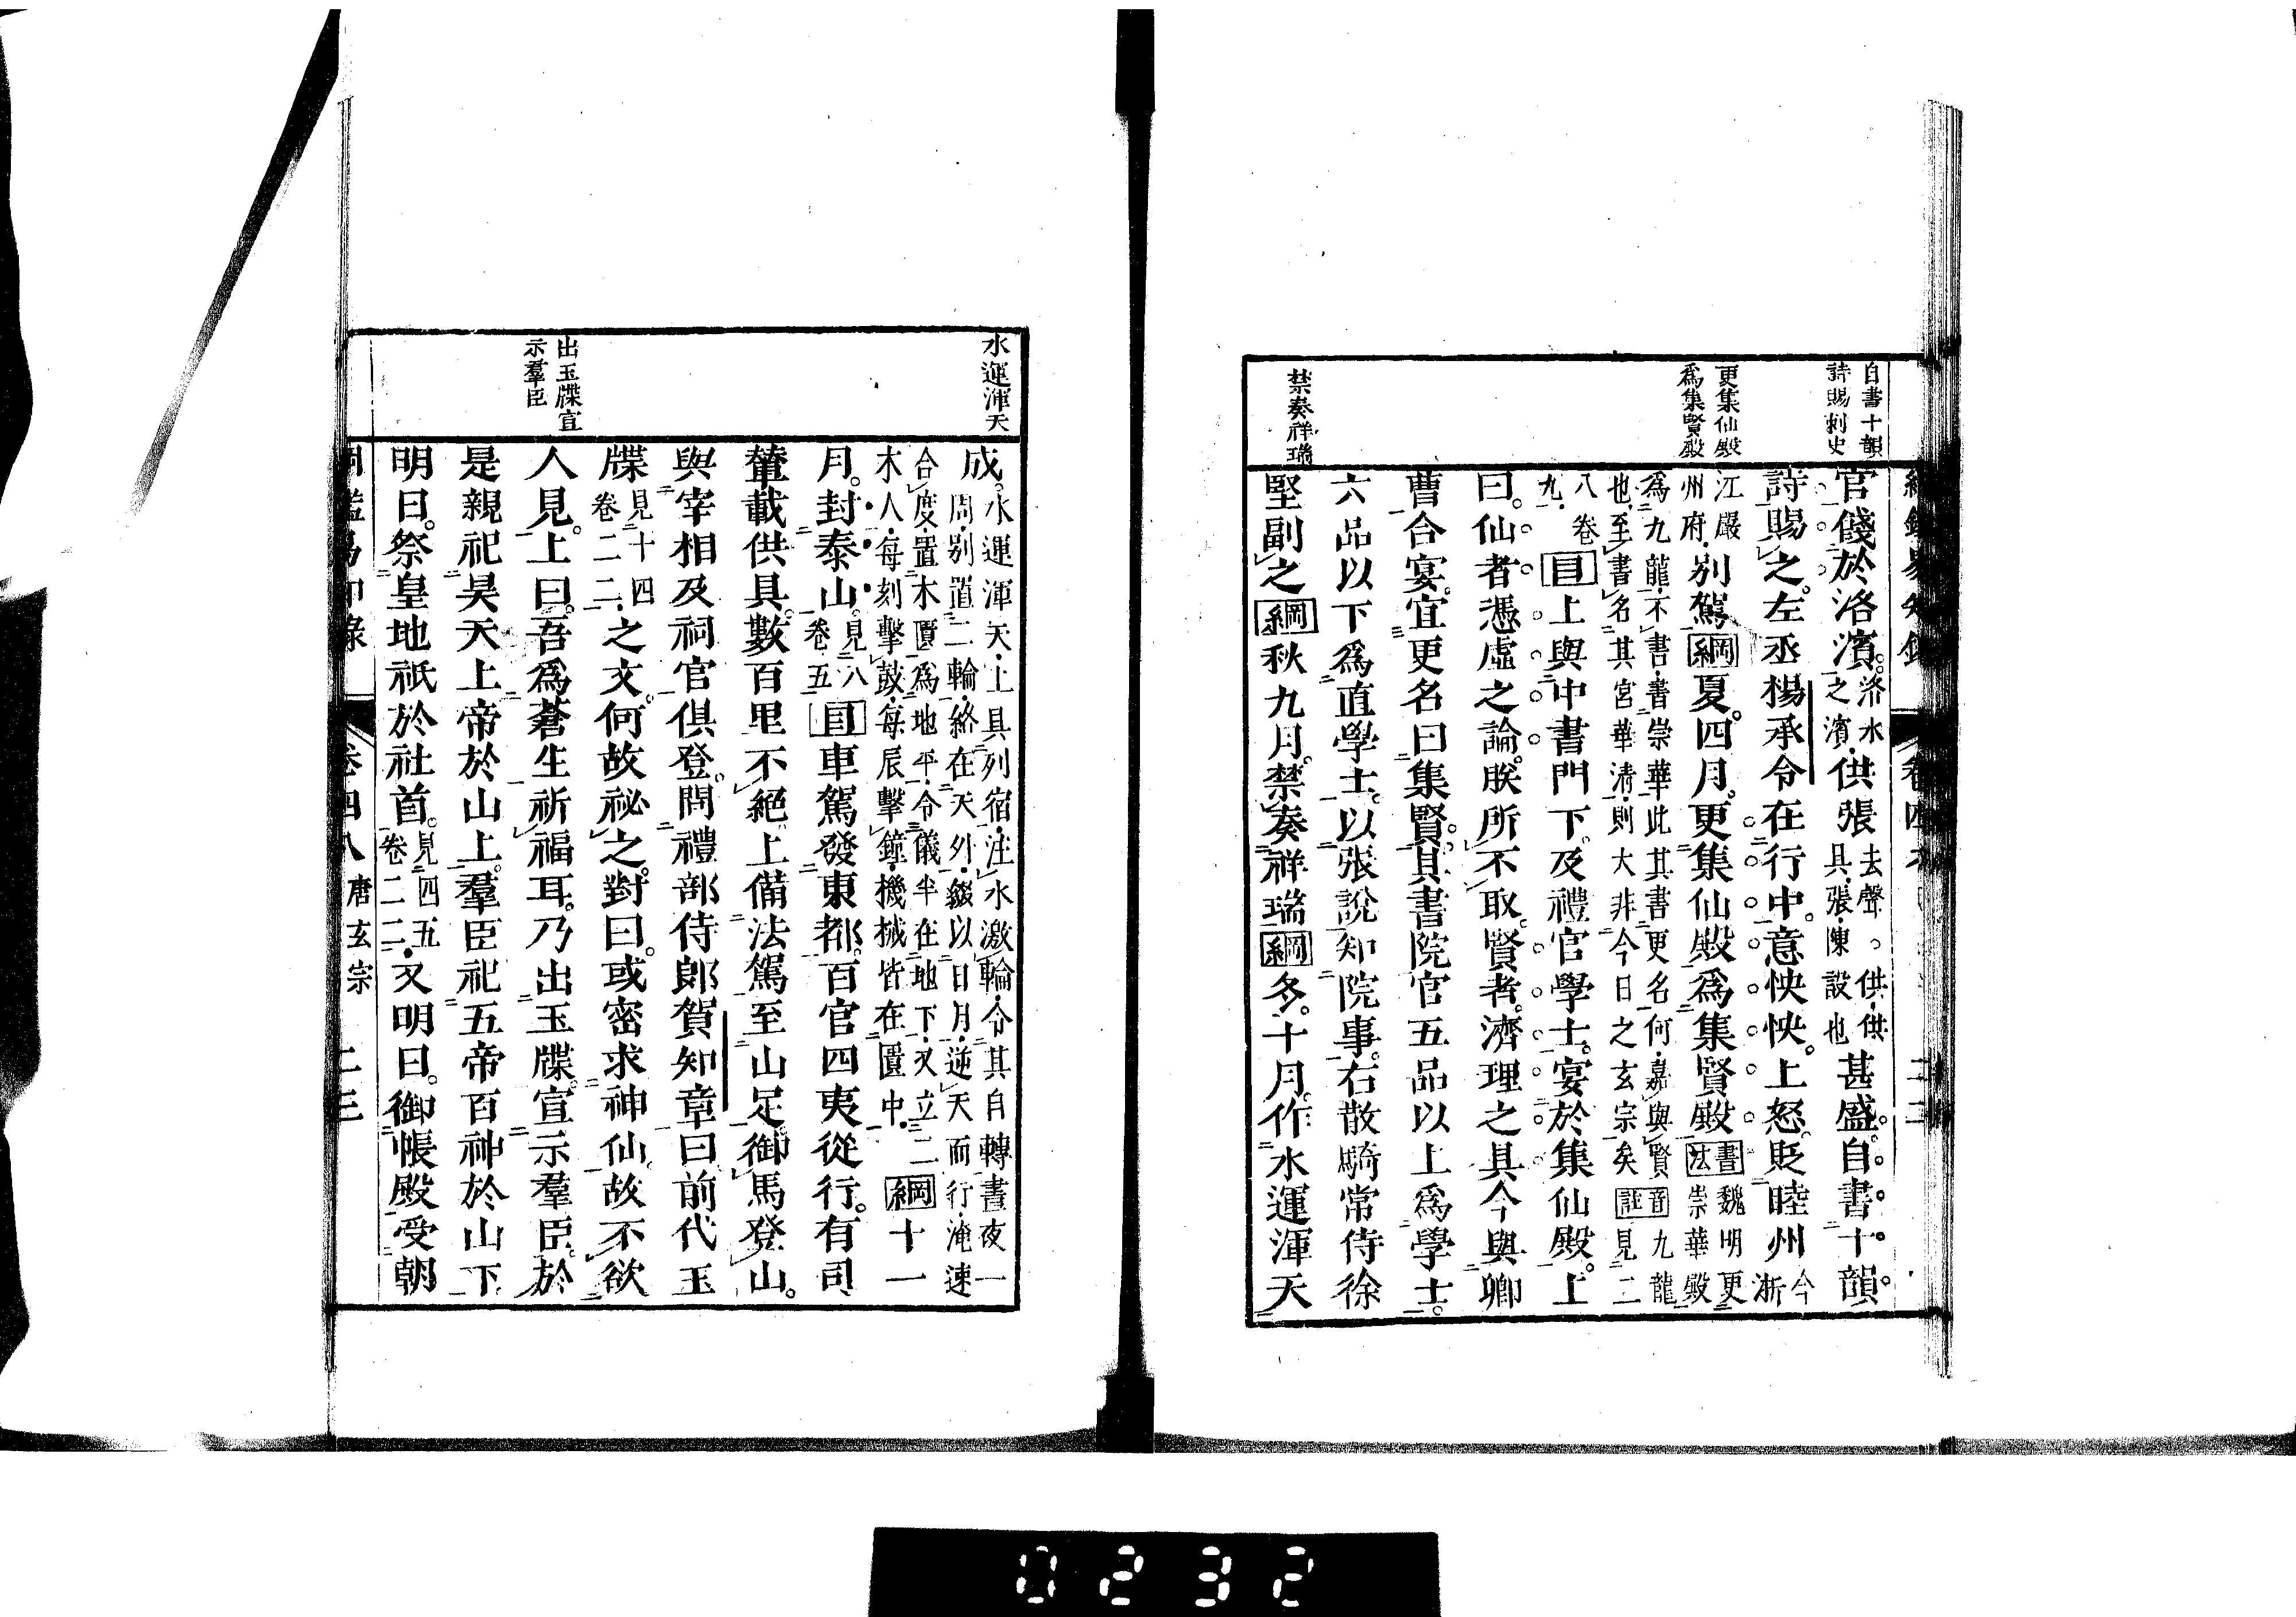 自書十韻
詩賜刺史
更集仙殿
爲集賢殿
禁奏祥瑞
官餞於洛濱。洛水之濱。供張去聲。供供具張陳設也甚盛。自書十韻
詩賜之。左丞楊承令在行中。意怏怏。上怒。貶睦州今浙
江嚴州府別駕綱夏。四月。更集仙殿爲集賢殿書法魏明更崇華殿
爲九龍不書書崇華此其書更名何嘉與賢也至書名其宮華清則大非今日之玄宗矣音註九龍見二
八卷九目上與中書門下。及禮官學士。宴於集仙殿。上
曰。仙者憑虛之論。朕所不取。賢者。濟理之具今與卿
曹合宴。宜更名曰集賢。其書院官五品以上爲學士。
六品以下爲直學士。以張說知院事。右散騎常侍徐
堅副之綱秋九月。禁奏祥瑞綱冬。十月。作水運渾天
卷四八 二二
水運渾天
出玉牒宣
示羣臣
成。水運渾天上具列宿注水激輪令其自轉晝夜一周別置二輪絡在天外綴以日月逆天而行淹速
合度置木匱爲地平令儀半在地下又立二木人每刻擊鼓每辰擊鐘機械皆在匱中綱十一
月。封泰山。見八卷五目車駕發東都。百官四夷從行。有司
輦載供具。數百里不絕上備法駕至山足御馬登山。
與宰相及祠官俱登。問禮部侍郎賀知章曰前代玉
牒見十四卷二二之文。何故祕之。對曰。或密求神仙。故不欲
人見。上曰。吾爲蒼生祈福耳。乃出玉牒。宣示羣臣。於
是親祀昊天上帝於山上。羣臣祀五帝百神於山下
明日。祭皇地祇於社首。見四五卷二二又明日。御帳殿受朝
綱鑑易知錄 卷四八 唐玄宗 二三
0232